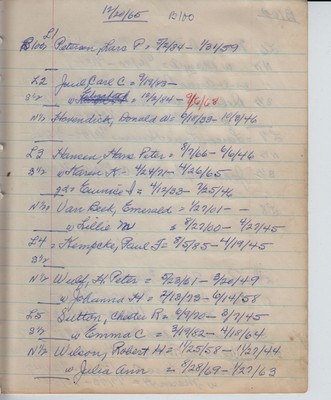 12/20/65 B/00
L1
B/00 Petersen, Lars P = 7/2/84 - 1/31/59
L2 Juul, Carl C = 9/19/83 -
S½ w = 12/2/84 - 9/6/68
N½ Hovendick, Donald W = 9/18/33 - 10/9/46
L3 Hansen, Hans Peter = 8/7/66 - 6/6/46
S½ w Karen K - 4/24/71 - 4/26/65
gd = Eunice = 4/12/33 - 3/25/46
N½ Van Beek, Emerald = 1/27/01 -
w Lillie M = 8/27/00 - 4/27/45
L4 = Kempcke, Paul F = 3/5/85 - 4/19/45
S½
N½ Wulf, H. Peter = 5/23/61 - 3/20/49
w Johanna H = 7/13/73 - 6/14/58
L5 Sutton, Chester R = 4/9/70 - 3/7/45
S½ w Emma C = 3/19/82 - 4/18/64
N½ Wilson, Robert H = 11/25/58 - 1/27/44
w Julia Ann = 8/28/69 - 1/27/63